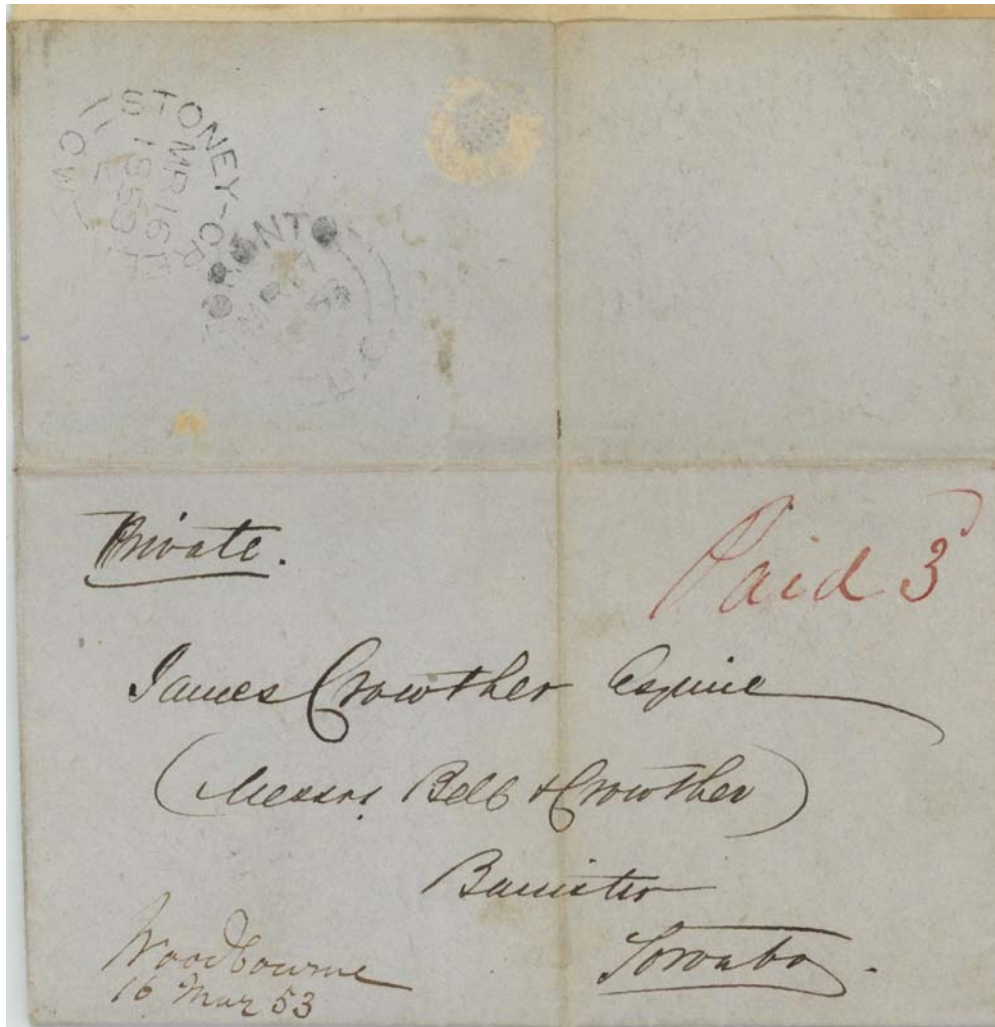 STONEY-CREEK C.W
MR 16
1853
TORONTO
MR 17
Private.
Paid 3
James Crowther Esquire
(Messrs Bell & Crowther)
Barrister
Toronto.
Woodbourne
16 Mar 53